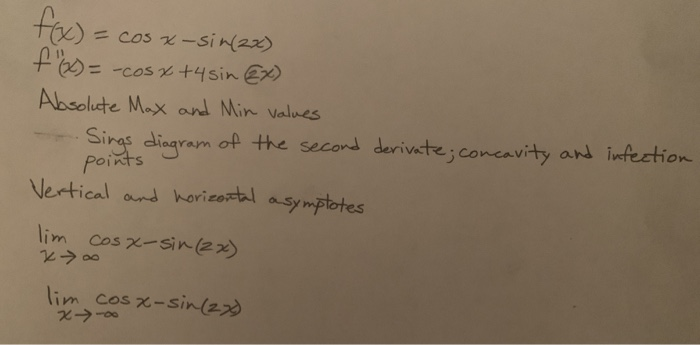 f(x) = cos x - sin(2x)
f"(x) = -cos x + 4 sin (2x)
Absolute Max and Min values
Sings diagram of the second derivate; concavity and infection
points
Vertical and horizontal asymptotes
lim cos x - sin(2x)
x→∞
lim cos x - sin(2x)
x→-∞